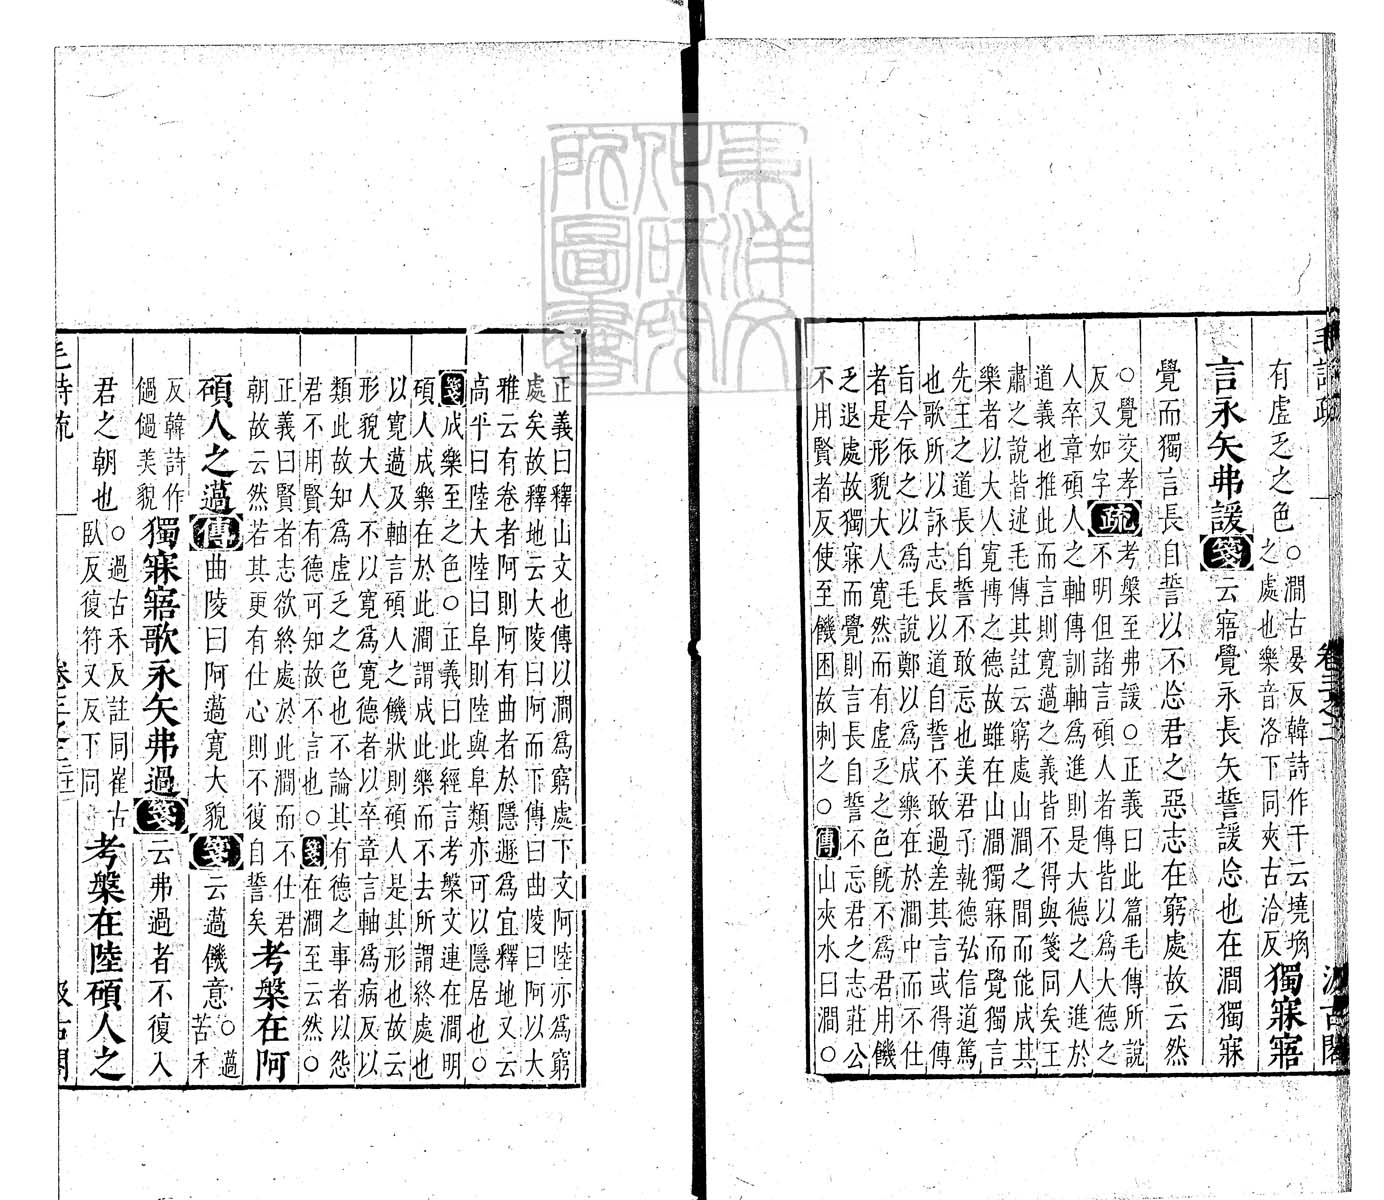 毛詩疏
卷三之二
汲古閣
有虛乏之色○澗古晏反韓詩作干云墝埆
之處也樂音洛下同夾古洽反
獨寐寤
言永矢弗諼箋云寤覺永長矢誓諼忘也在澗獨寐
覺而獨言長自誓以不忘君之惡志在窮處故云然
○覺交孝
反又如字
疏
考槃至弗諼○正義曰此篇毛傳所說
不明但諸言碩人者傳皆以為大德之
人卒章碩人之軸傳訓軸為進則是大德之人進於
道義也推此而言則寬薖之義皆不得與箋同矣王
肅之說皆述毛傳其註云窮處山澗之間而能成其
樂者以大人寬博之德故雖在山澗獨寐而覺獨言
先王之道長自誓不敢忘也美君子執德弘信道篤
也歌所以詠志長以道自誓不敢過差其言或得傳
旨今依之以為毛說鄭以為成樂在於澗中而不仕
者是形貌大人寬然而有虛乏之色旣不為君用饑
乏退處故獨寐而覺則言長自誓不忘君之志莊公
不用賢者反使至饑困故刺之○傳山夾水曰澗○
正義曰釋山文也傳以澗為窮處下文阿陸亦為窮
處矣故釋地云大陵曰阿而下傳曰曲陵曰阿以大
雅云有卷者阿則阿有曲者於隱遯為宜釋地又云
高平曰陸大陸曰阜則陸與阜類亦可以隱居也○
箋成樂至之色○正義曰此經言考槃文連在澗明
碩人成樂在於此澗謂成此樂而不去所謂終處也
以寬薖及軸言碩人之饑狀則碩人是其形也故云
形貌大人不以寬為寬德者以卒章言軸為病反以
類此故知為虛乏之色也不論其有德之事者以怨
君不用賢有德可知故不言也○箋在澗至云然○
正義曰賢者志欲終處於此澗而不仕君
朝故云然若其更有仕心則不復自誓矣
考槃在阿
碩人之薖傳曲陵曰阿薖寬大貌箋云薖饑意○薖
苦禾
反韓詩作
㑩㑩美貌
獨寐寤歌永矢弗過箋云弗過者不復入
君之朝也○過古禾反註同崔古
臥反復符又反下同
考槃在陸碩人之
毛詩疏
卷三之二
汲古閣